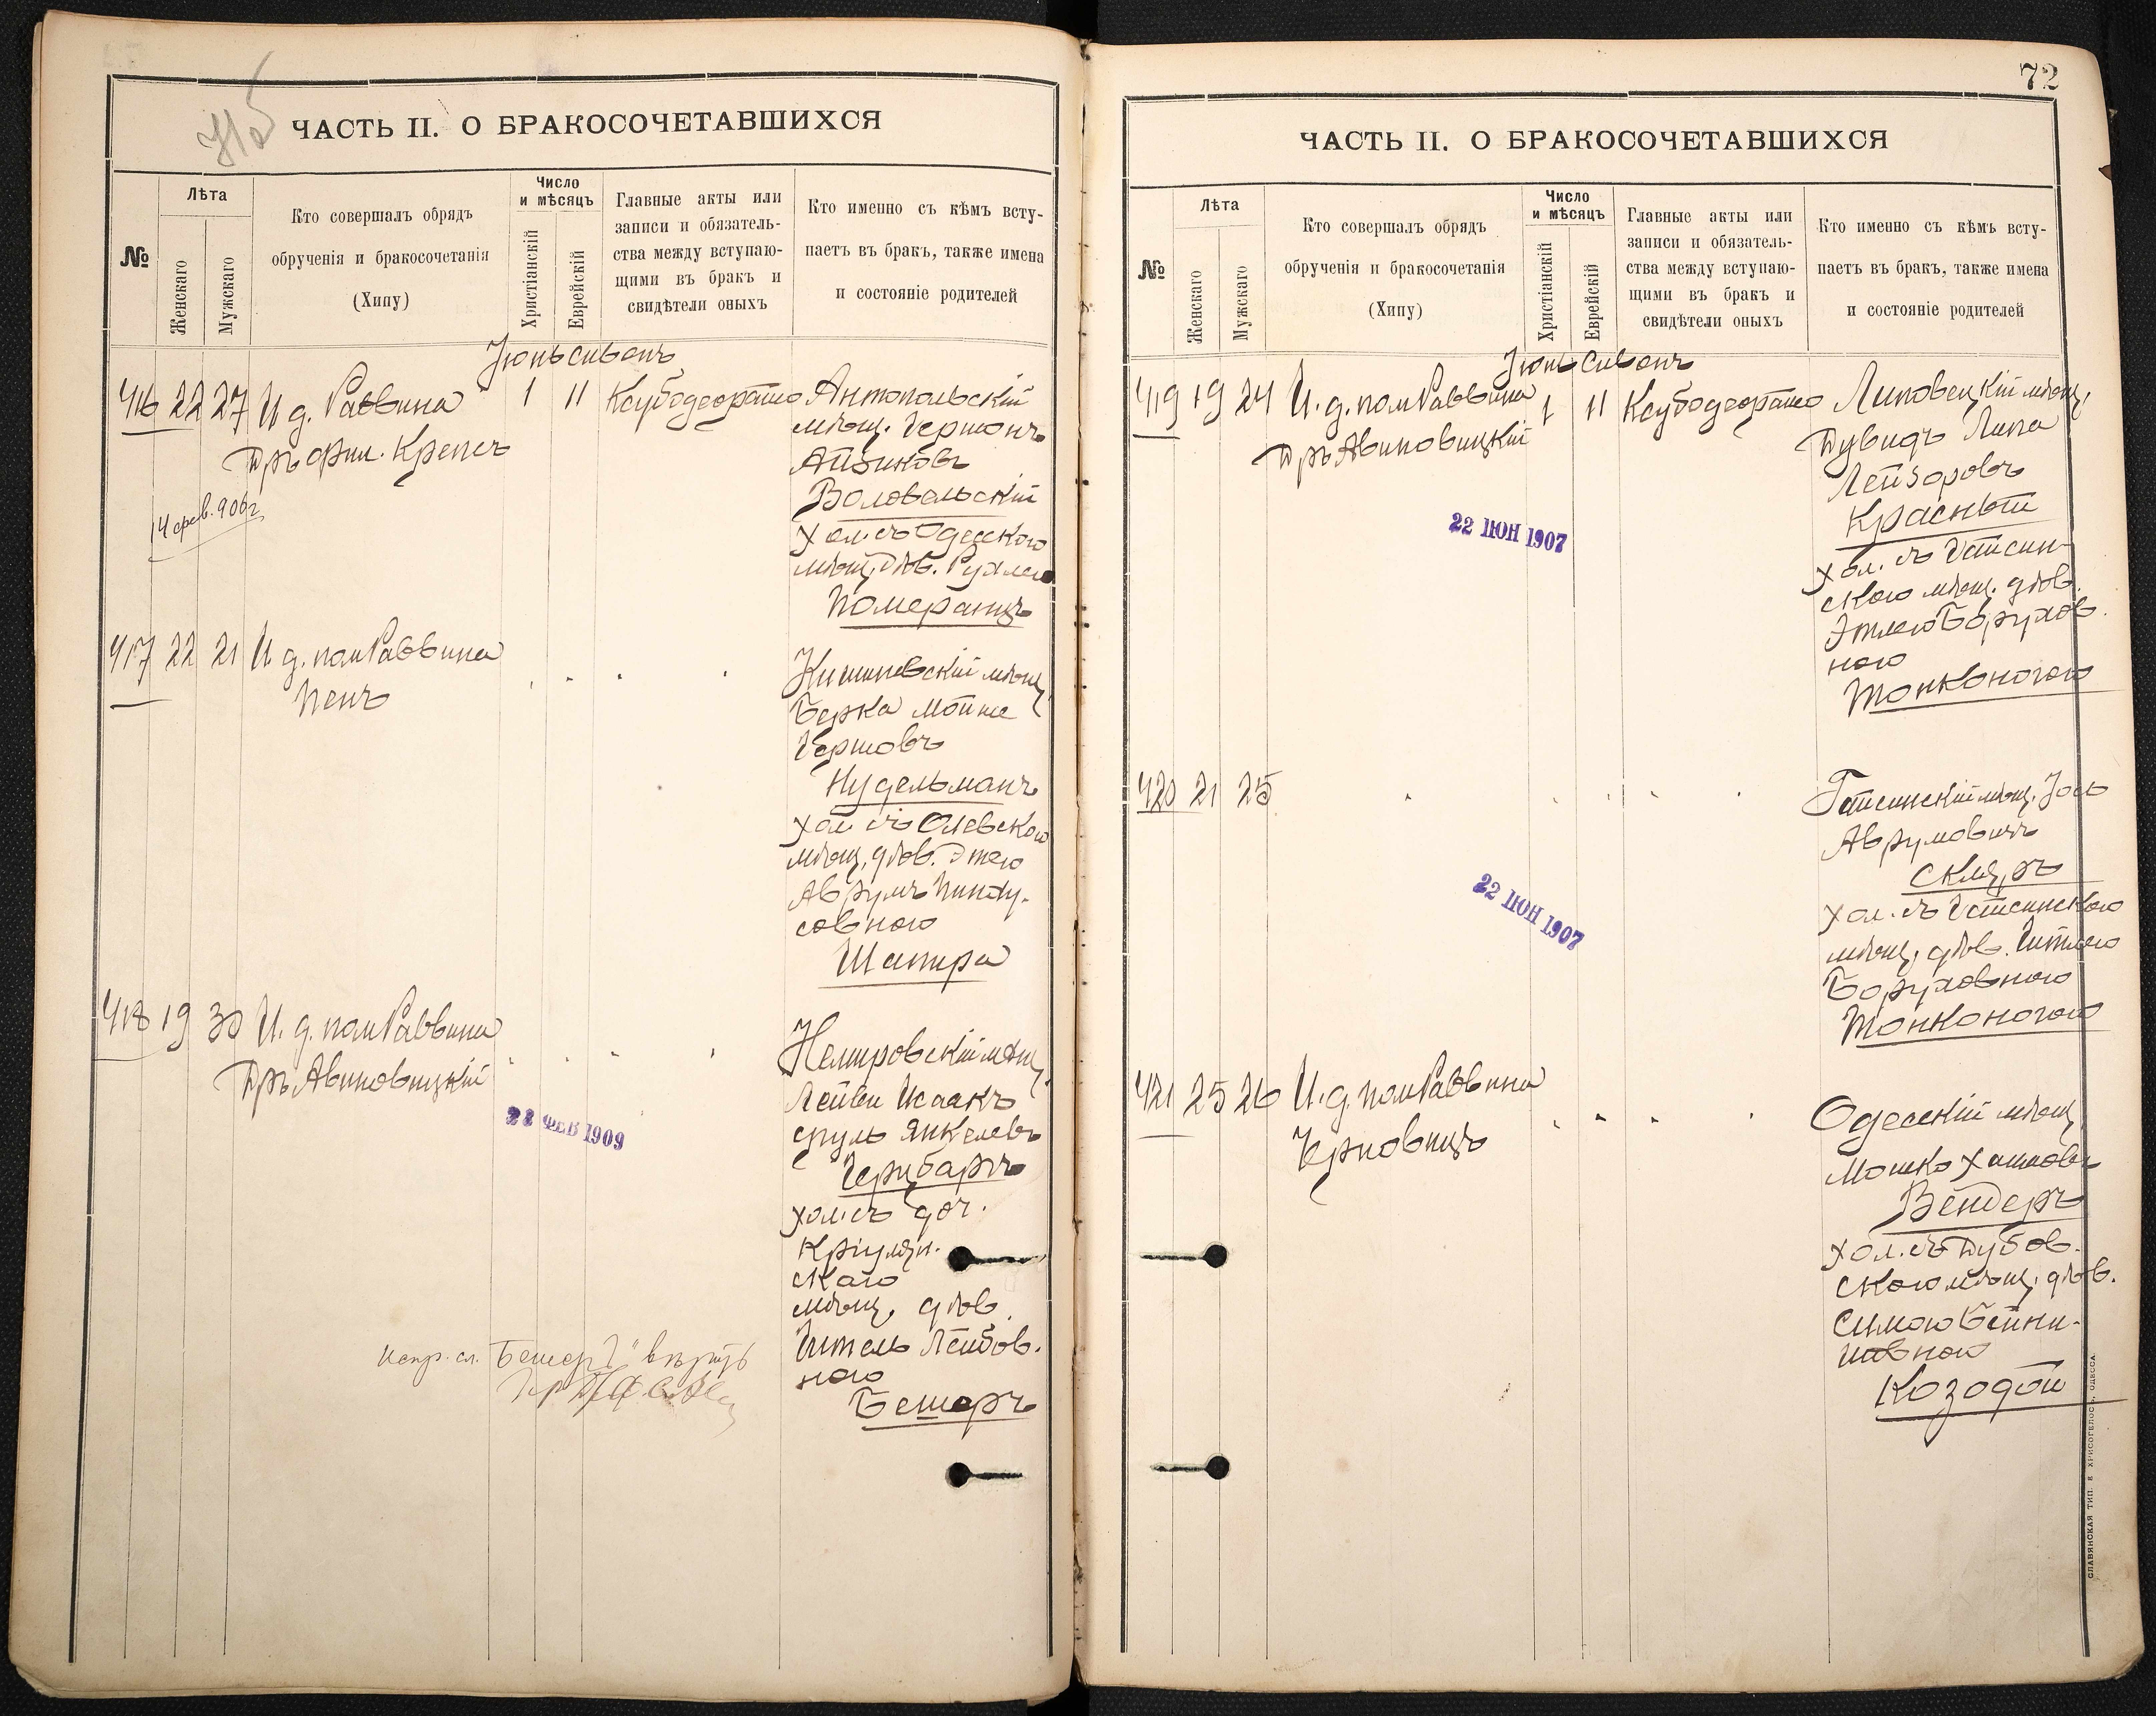 ЧАСТЬ II. О БРАКОСОЧЕТАВШИХСЯ
№
Лѣта
Женскаго
Мужскаго
Кто совершалъ обрядъ
обрученія и бракосочетанія
(Хипу)
Число
и мѣсяцъ
Христіанскій
Еврейскій
Главные акты или
записи и обязатель-
ства между вступаю-
щими въ бракъ и
свидѣтели оныхъ
Кто именно съ кѣмъ всту-
паетъ въ бракъ, также имена
и состояніе родителей
Іюнь Сивонъ
416 22 27 И д. Раввина 1 11
Дръ фил. Крепсъ
14 фев. 906 г.
Антопольскій
мѣщ. Гершонъ
Айзиковъ
Воловельскій
хол. съ Одесскою
мѣщ. дѣв. Рухлею
Померанцъ
417 22 21 И д. пом Раввина
Пенъ
Кишиневскій мѣщ.
Берка Мойше
Гершовъ
Нудельманъ
хол съ Олевскою
мѣщ. дѣв. Этею
Аврумъ Пинху-
совною
Шапира
418 19 30 И. д. пом Раввина
Дръ Авиновицкій
22 ФЕВ 1909
Немировскій мѣщ.
Лейви Исаакъ
Сруль Янкелевъ
Герцбаръ
хол. съ доч.
Кріулян-
скаго
мѣщ. дѣв.
Гитель Лейбов-
ною
Бешеръ
испр. сл. "Бешеръ" вѣрить
72
ЧАСТЬ II. О БРАКОСОЧЕТАВШИХСЯ
№
Лѣта
Женскаго
Мужскаго
Кто совершалъ обрядъ
обрученія и бракосочетанія
(Хипу)
Число
и мѣсяцъ
Христіанскій
Еврейскій
Главные акты или
записи и обязатель-
ства между вступаю-
щими въ бракъ и
свидѣтели оныхъ
Кто именно съ кѣмъ всту-
паетъ въ бракъ, также имена
и состояніе родителей
Іюнь Сивонъ
419 19 24 И. д. пом Раввина 1 11
Дръ Авиновицкій
22 ІЮН 1907
Липовецкій мѣщ.
Дувидъ Липа
Лейзоровъ
Красный
хол. съ Гайсин-
скою мѣщ. дѣв.
Этлею Борухов-
ною
Тонконогою
420 21 25
22 ІЮН 1907
Гайсинскій мѣщ. Іось
Аврумовичъ
Скляръ
хол. съ Гайсинскою
мѣщ. дѣв. Гитлею
Боруховною
Тонконогою
421 25 26 И. д. пом Раввина
Черновицъ
Одесскій мѣщ.
Мошко Хаимовъ
Вендеръ
хол. съ Дубов-
скою мѣщ. дѣв.
Симою Бейни-
шовною
Козодой
СЛАВЯНСКАЯ ТИП. Е ХРИСОГЕЛОСЪ, ОДЕССА.